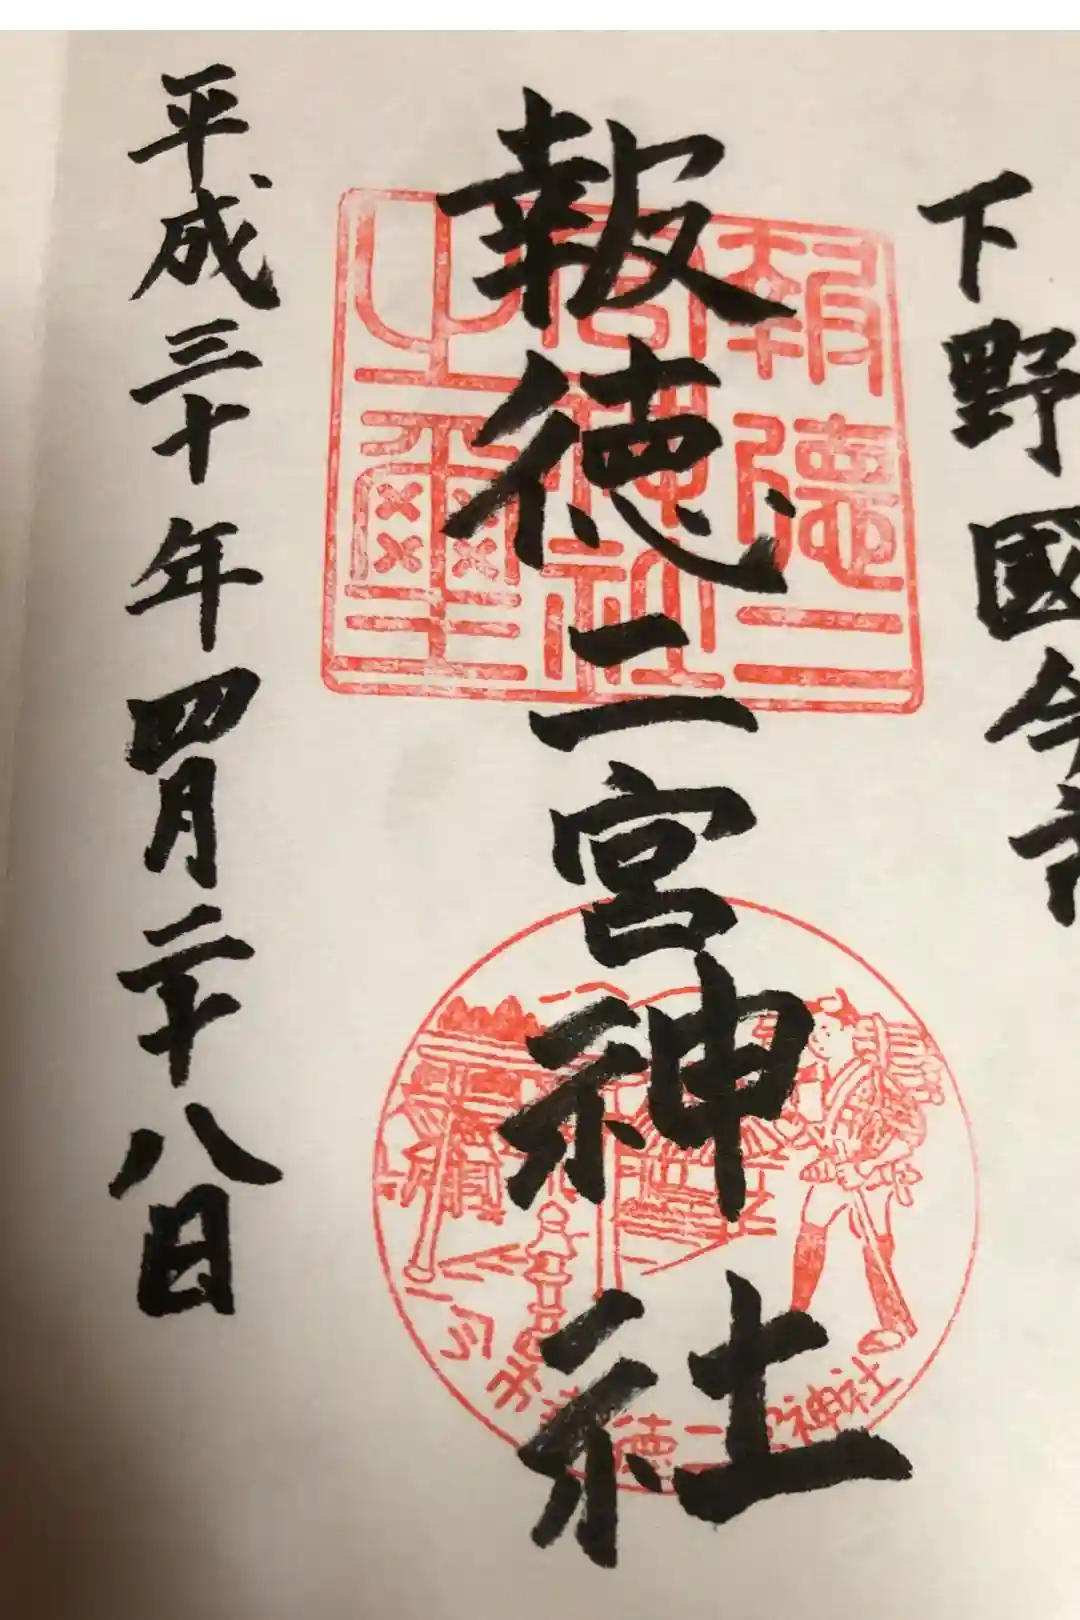 下野國今市
報徳二宮神社
平成三十年四月二十八日
報徳二
宮神社
之璽
今市報徳二宮神社